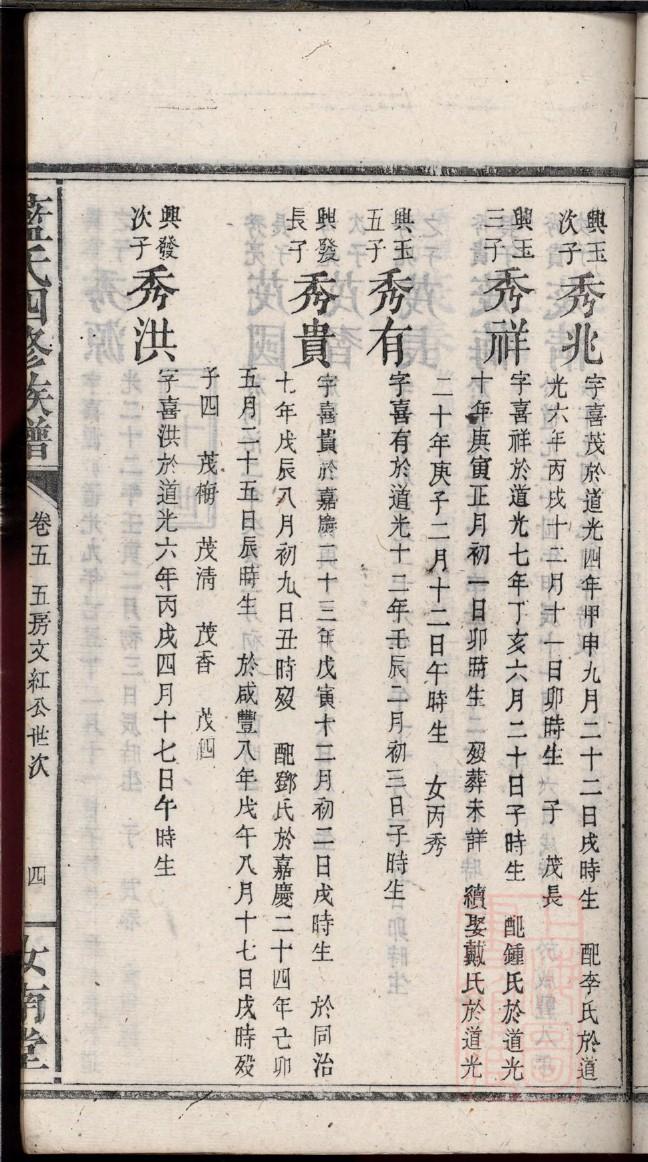 興玉
次子
秀兆
字喜茂於道光四年甲申九月二十二日戌時生 配李氏於道
光六年丙戌十二月十一日卯時生 子 茂長
興玉
三子
秀祥
字喜祥於道光七年丁亥六月二十日子時生 配鍾氏於道光
十年庚寅正月初一日卯時生 歿葬未詳 續娶戴氏於道光
二十年庚子二月十二日午時生 女丙秀
興玉
五子
秀有
字喜有於道光十二年壬辰二月初三日子時生
興發
長子
秀貴
字喜貴於嘉慶二十三年戊寅十二月初二日戌時生 於同治
七年戊辰八月初九日丑時歿 配鄧氏於嘉慶二十四年己卯
五月二十五日辰時生 於咸豐八年戊午八月十七日戌時歿
子四 茂梅 茂清 茂香 茂
興發
次子
秀洪
字喜洪於道光六年丙戌四月十七日午時生
藍氏四修族譜
卷五 五房文紅公世次
四
汝南堂